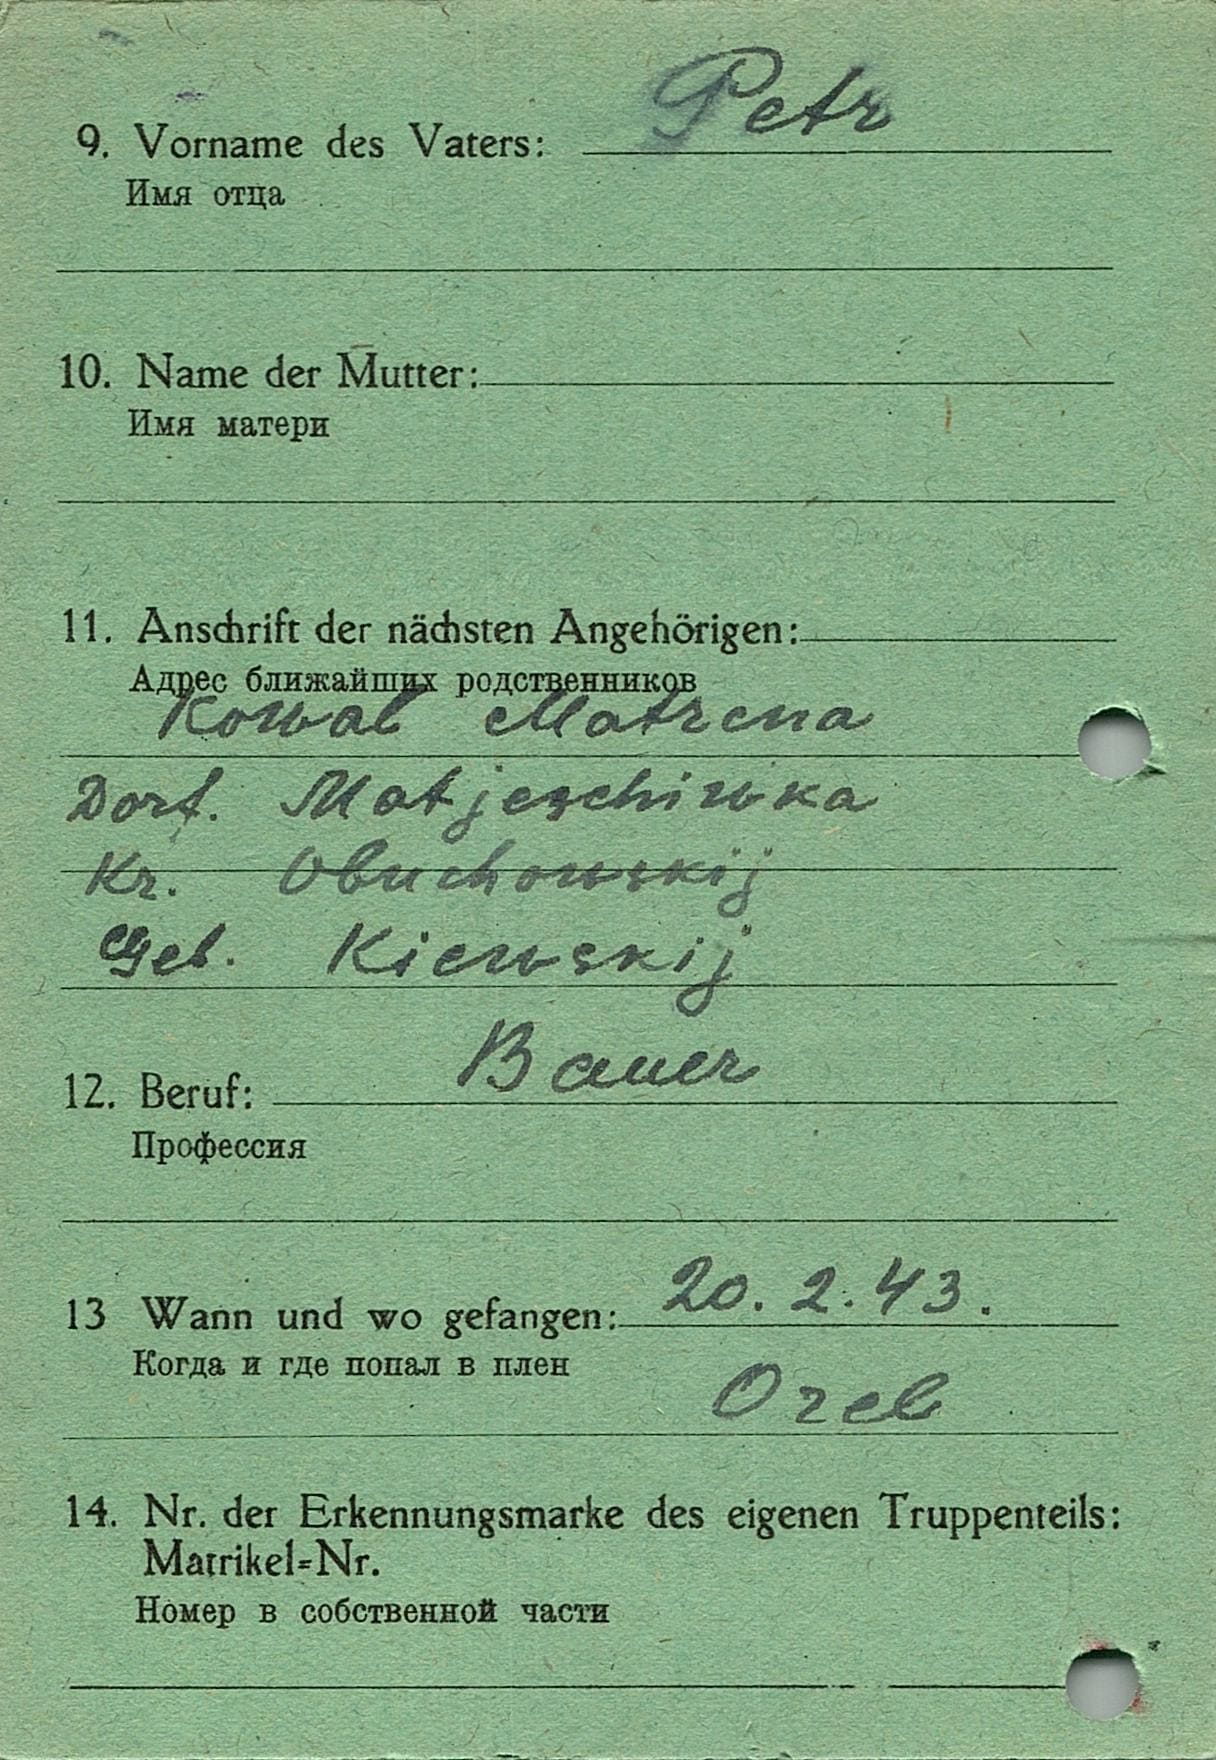 9. Vorname des Vaters: Petr
Имя отца
10. Name der Mutter:
Имя матери
11. Anschrift der nächsten Angehörigen:
Адрес ближайших родственников
Kowal Matrena
Dorf. Matjeschiwka
Kr. Obuchowskij
Geb. Kiewskij
12. Beruf: Bauer
Профессия
13 Wann und wo gefangen: 20. 2. 43.
Когда и где попал в плен
Orel
14. Nr. der Erkennungsmarke des eigenen Truppenteils:
Matrikel=Nr.
Номер в собственной части